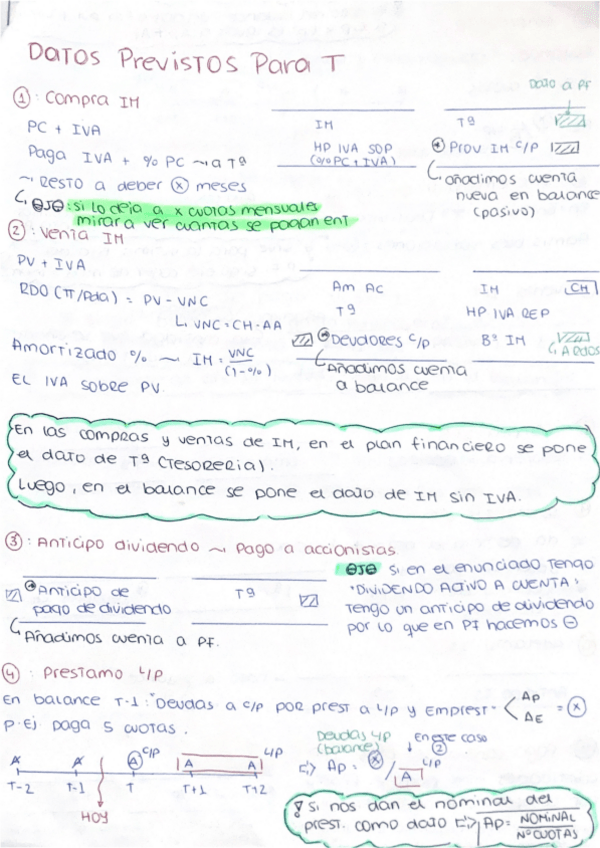 DATOS PREVISTOS PARA T
Dato a PF
① : Compra IM
PC + IVA
Paga IVA + % PC ~ a Tª
~ Resto a deber ⓧ meses
IM
HP IVA SOP
(% PC + IVA)
Tª
* Prov IM C/P
añadimos cuenta
nueva en balance
(pasivo)
OJO : si lo deja a x cuotas mensuales
mirara ver cuantas se pagan en T
② : Venta IM
PV + IVA
RDO (π/Pdda) = PV - VNC
VNC = CH - AA
Amortizado % ~ IM = VNC/(1-%)
EL IVA sobre PV.
Am Ac
Tª
* Deudores C/P
Añadimos cuenta
a balance
IM CH
HP IVA REP
Bº IM
A RDOS
En las compras y ventas de IM, en el plan financiero se pone
el dato de Tª (Tesorería).
Luego, en el balance se pone el dato de IM sin IVA.
③ : Anticipo dividendo ~ Pago a accionistas
* Anticipo de
pago de dividendo
Tª
Añadimos cuenta a PF.
OJO si en el enunciado tengo
"DIVIDENDO ACTIVO A CUENTA"
Tengo un anticipo de dividendo
por lo que en PF hacemos ⊖
④ : Prestamo L/P
En balance T-1 : Deudas a C/P por prest a L/P y Emprest. < Ap ΔE = ⓧ
P. Ej paga 5 cuotas.
A A Ⓐ C/P A A L/P
T-2 T-1 T T+1 T+2
HOY
Deudas L/P
(balance)
En este caso
②
⇨ Ap = ⓧ / A L/P
! Si nos dan el nominal del
prest. como dato ⇨ Ap = NOMINAL/Nº CUOTAS